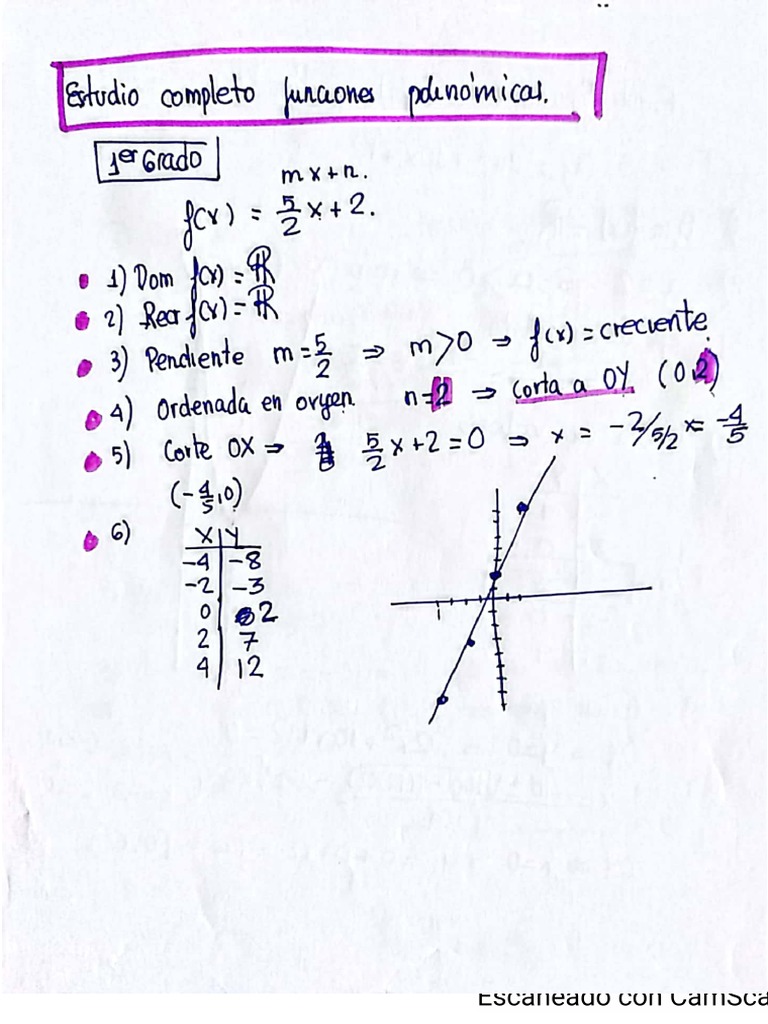 Estudio completo funciones polinómicas.
1er Grado
mx+n.
f(x) = 5/2 x + 2.
1) Dom f(x) = ℝ
2) Rec f(x) = ℝ
3) Pendiente m = 5/2 ⇒ m > 0 ⇒ f(x) = creciente
4) Ordenada en orygen n=2 ⇒ corta a OY (0,2)
5) Corte OX ⇒ 5/2 x + 2 = 0 ⇒ x = -2/5/2 x = -4/5
(-4/5, 0)
6) X | Y
-4 | -8
-2 | -3
0 | 2
2 | 7
4 | 12
Escaneado con CamSca